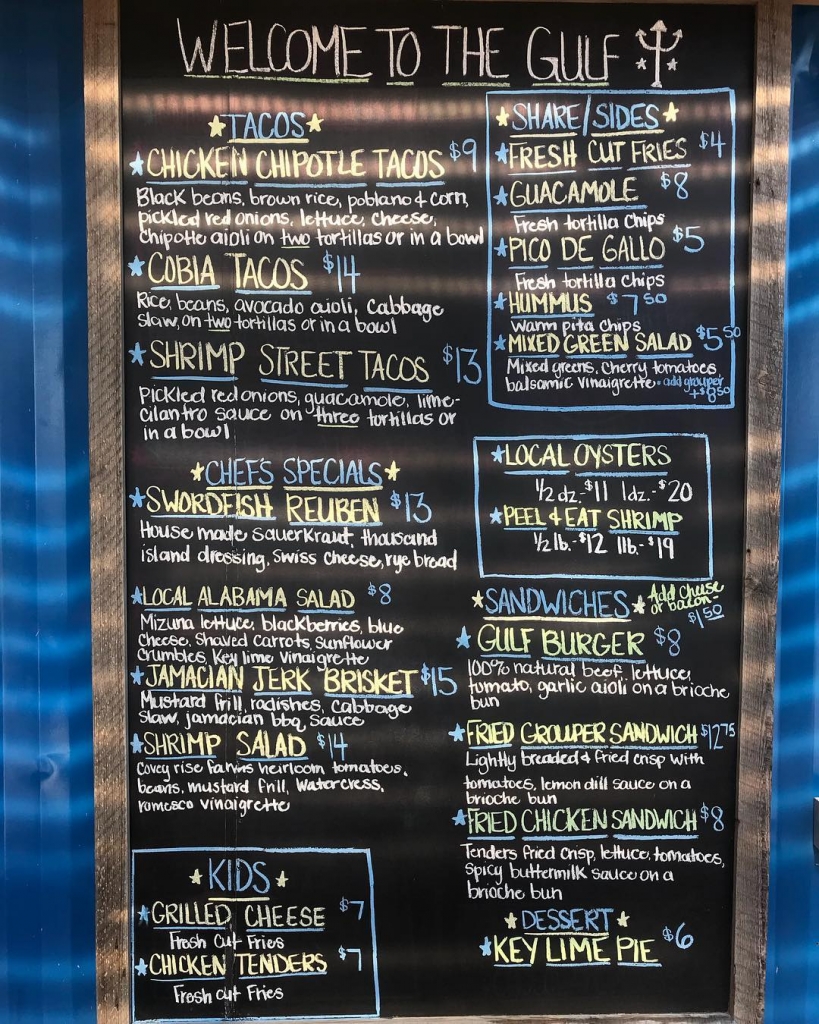 WELCOME TO THE GULF
★TACOS★
★CHICKEN CHIPOTLE TACOS $9
Black beans, brown rice, poblano & corn,
pickled red onions, lettuce, cheese,
Chipotle aioli on two tortillas or in a bowl
★COBIA TACOS $14
Rice, beans, avocado aioli, Cabbage
Slaw, on two tortillas or in a bowl
★SHRIMP STREET TACOS $13
Pickled red onions, guacamole, lime-
cilantro sauce on three tortillas or
in a bowl
★CHEF'S SPECIALS★
★SWORDFISH REUBEN $13
House made Sauerkraut, thousand
island dressing, Swiss cheese, rye bread
★LOCAL ALABAMA SALAD $8
Mizuna lettuce, blackberries, blue
Cheese, Shaved Carrots, Sunflower
Crumbles, Key lime Vinaigrette
★JAMACIAN JERK BRISKET $15
Mustard frill, radishes, Cabbage
Slaw, jamacian bbq sauce
★SHRIMP SALAD $14
Covey rise farms heirloom tomatoes,
beans, mustard frill, Watercress,
romesco vinaigrette
★KIDS★
★GRILLED CHEESE $7
Fresh Cut Fries
★CHICKEN TENDERS $7
Fresh cut Fries
★SHARE/SIDES★
★FRESH CUT FRIES $4
★GUACAMOLE $8
Fresh tortilla Chips
★PICO DE GALLO $5
Fresh tortilla Chips
★HUMMUS $7 50
Warm pita Chips
★MIXED GREEN SALAD $5 50
Mixed greens, Cherry tomatoes
balsamic vinaigrette • add grouper
+$8 50
★LOCAL OYSTERS
1/2 dz.-$11 1dz.-$20
★PEEL & EAT SHRIMP
1/2 lb.-$12 1lb.-$19
★SANDWICHES★ Add cheese
or bacon-
$1 50
★GULF BURGER $8
100% natural beef, lettuce,
tomato, garlic aioli on a brioche
bun
★FRIED GROUPER SANDWICH $12 75
Lightly breaded & fried crisp with
tomatoes, lemon dill sauce on a
brioche bun
★FRIED CHICKEN SANDWICH $8
Tenders fried crisp, lettuce, tomatoes,
Spicy buttermilk sauce on a
brioche bun
★DESSERT★
★KEY LIME PIE $6